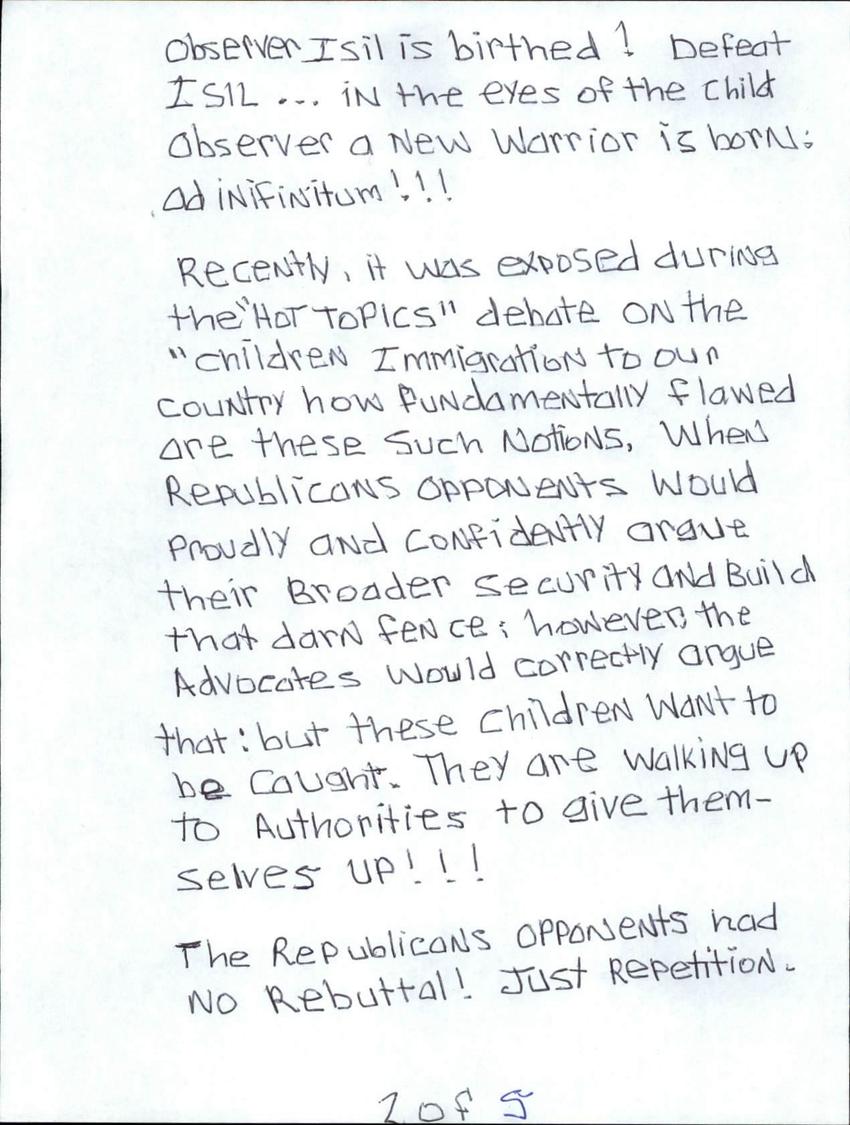 Observer Isil is birthed! Defeat
ISIL ... in the eyes of the child
Observer a New Warrior is born:
ad inifinitum!!!
Recently, it was exposed during
the "HOT TOPICS" debate ON the
"children Immigration to our
country how fundamentally flawed
are these such Notions, When
Republicans opponents would
proudly and confidently argue
their Broader security and Build
that darn fence; however, the
Advocates would correctly argue
that: but these children want to
be caught. They are walking up
to Authorities to give them-
selves up!!!
The Republicans opponents had
No Rebuttal! Just Repetition.
2 of 5